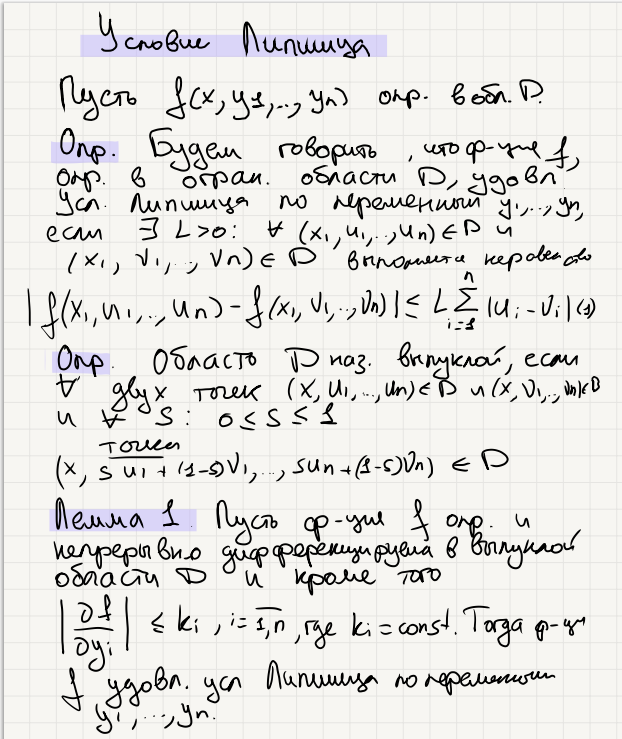 Условие Липшица
Пусть f(x, y1,.., yn) опр. в обл. D.
Опр. Будем говорить, что ф-ция f,
опр. в огран. области D, удовл.
усл. Липшица по переменным y1,..., yn,
если ∃ L>0: ∀ (x, u1,..., un) ∈ D и
(x, v1,..., vn) ∈ D выполняется неравенство
|f(x, u1,..., un) - f(x, v1,.., vn)| ≤ L ∑_{i=1}^{n} |ui - vi| (1)
Опр. Область D наз. выпуклой, если
∀ двух точек (x, u1,..., un) ∈ D и (x, v1,..., vn) ∈ D
и ∀ s: 0 ≤ s ≤ 1
точка
(x, su1 + (1-s)v1,..., sun + (1-s)vn) ∈ D
Лемма 1. Пусть ф-ция f опр. и
непрерывно дифференцируема в выпуклой
области D и кроме того
|∂f/∂yi| ≤ ki, i = 1,n, где ki = const. Тогда ф-ция
f удовл. усл Липшица по переменным
y1,..., yn.